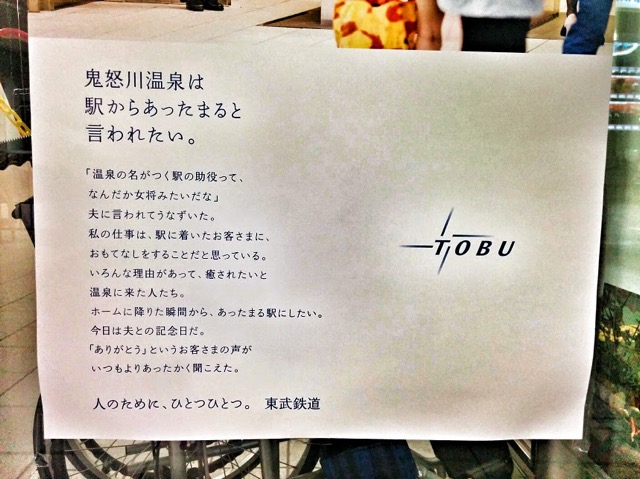 鬼怒川温泉は
駅からあったまると
言われたい。
「温泉の名がつく駅の助役って、
なんだか女将みたいだな」
夫に言われてうなずいた。
私の仕事は、駅に着いたお客さまに、
おもてなしをすることだと思っている。
いろんな理由があって、癒されたいと
温泉に来た人たち。
ホームに降りた瞬間から、あったまる駅にしたい。
今日は夫との記念日だ。
「ありがとう」というお客さまの声が
いつもよりあったかく聞こえた。
人のために、ひとつひとつ。 東武鉄道
TOBU